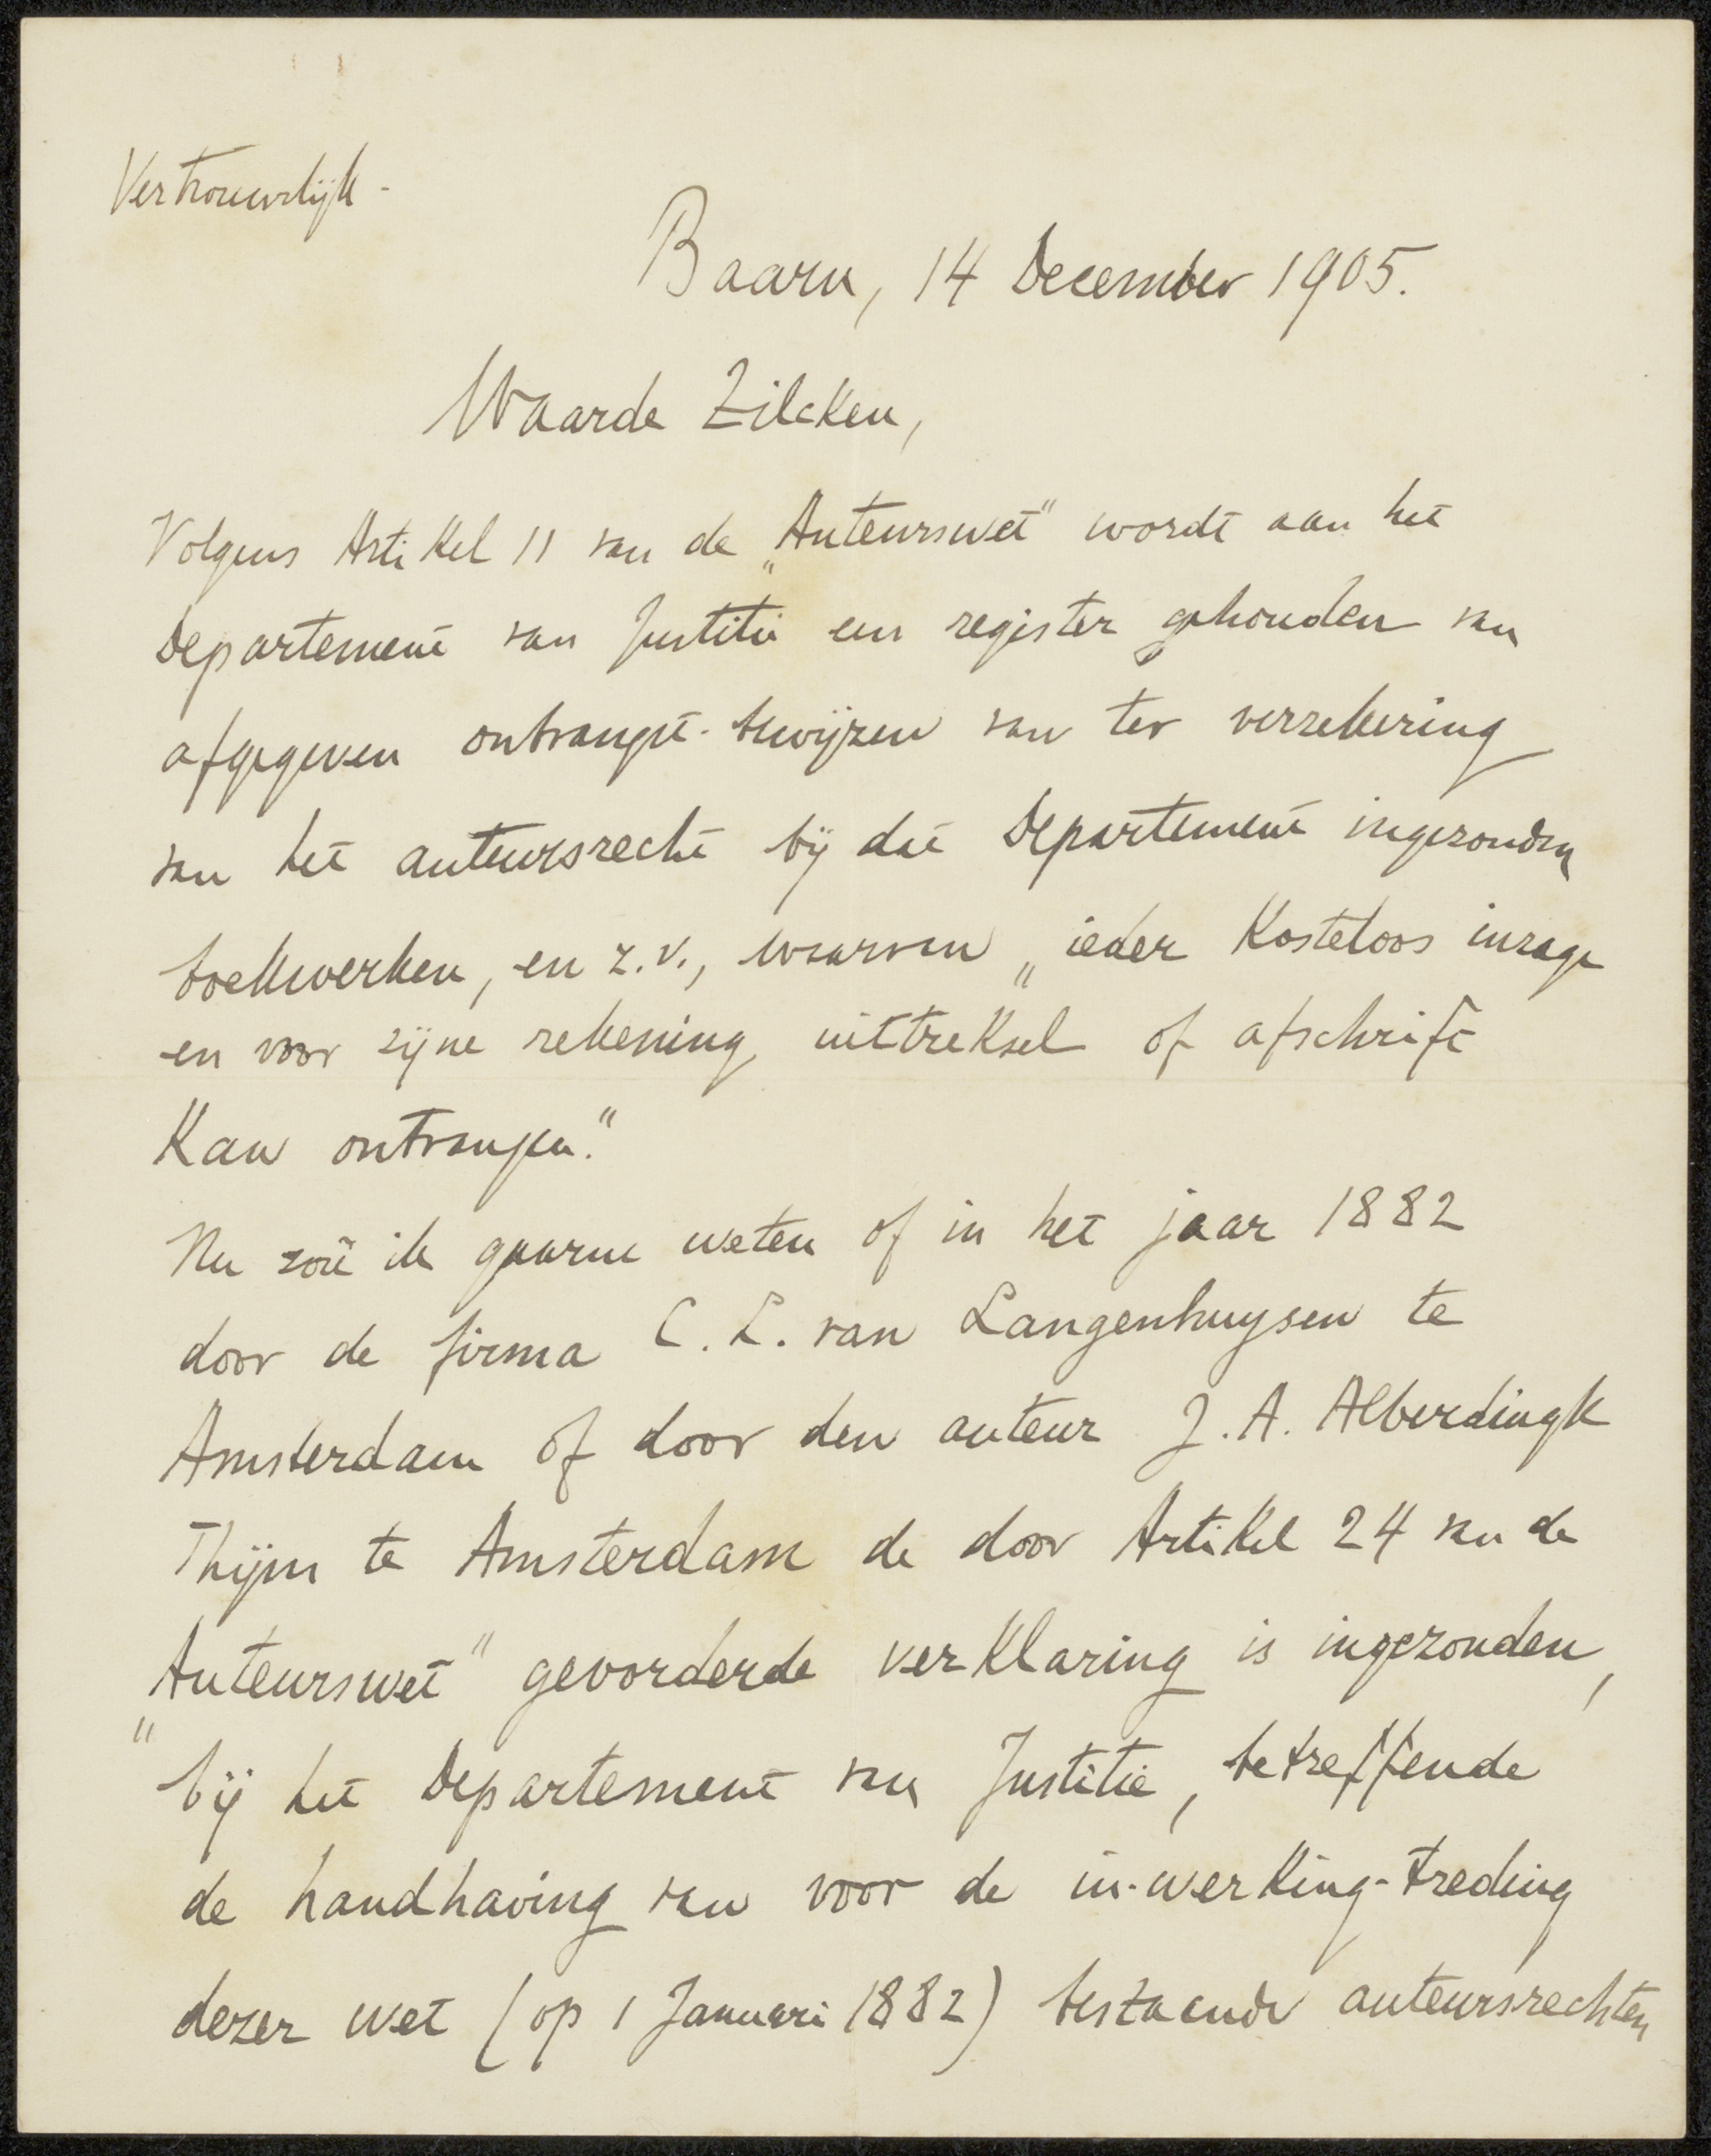 Vertrouwelijk -
Baarn, 14 December 1905.
Waarde Zilcken,
Volgens Artikel 11 van de „Auteurswet" wordt aan het
Departement van Justitie een register gehouden van
afgegeven ontvangst-bewijzen van ter verzekering
van het auteursrecht bij dat Departement ingezonden
boekwerken, en z.v., waarvan „ieder kosteloos inzage
en voor zijne rekening uittreksel of afschrift
kan ontvangen."
Nu zoû ik gaarne weten of in het jaar 1882
door de firma C. L. van Langenhuysen te
Amsterdam of door den auteur J. A. Alberdingk
Thijm te Amsterdam de door Artikel 24 van de
„Auteurswet" gevorderde verklaring is ingezonden,
bij het Departement van Justitie, betreffende
de handhaving van voor de in-werking-treding
dezer wet (op 1 Januari 1882) bestaande auteursrechten